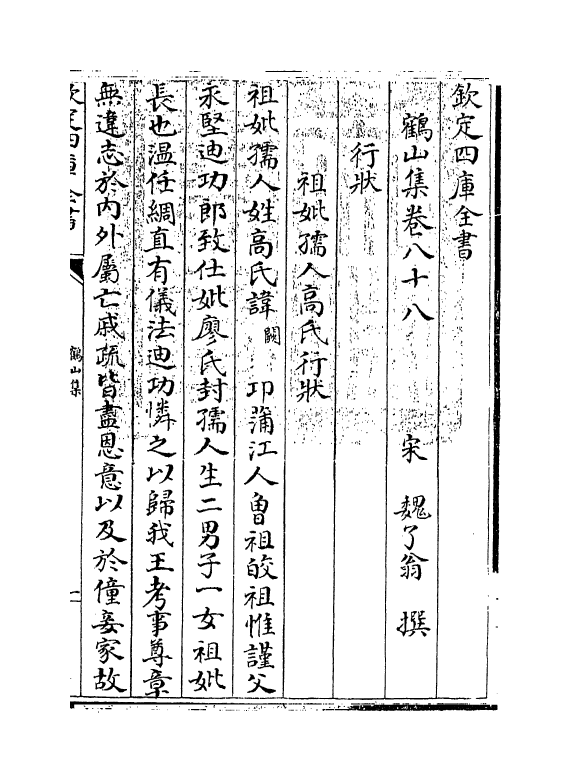 欽定四庫全書
鶴山集卷八十八　宋　魏了翁　撰
行狀
祖妣孺人高氏行狀
祖妣孺人姓高氏諱闕卭蒲江人曾祖皎祖惟謹父
永堅迪功郎致仕妣廖氏封孺人生二男子一女祖妣
長也温任綢直有儀法迪功憐之以歸我王考事尊章
無違志於内外屬亡戚疏皆盡恩意以及於僮妾家故
欽定四庫全書
鶴山集
一